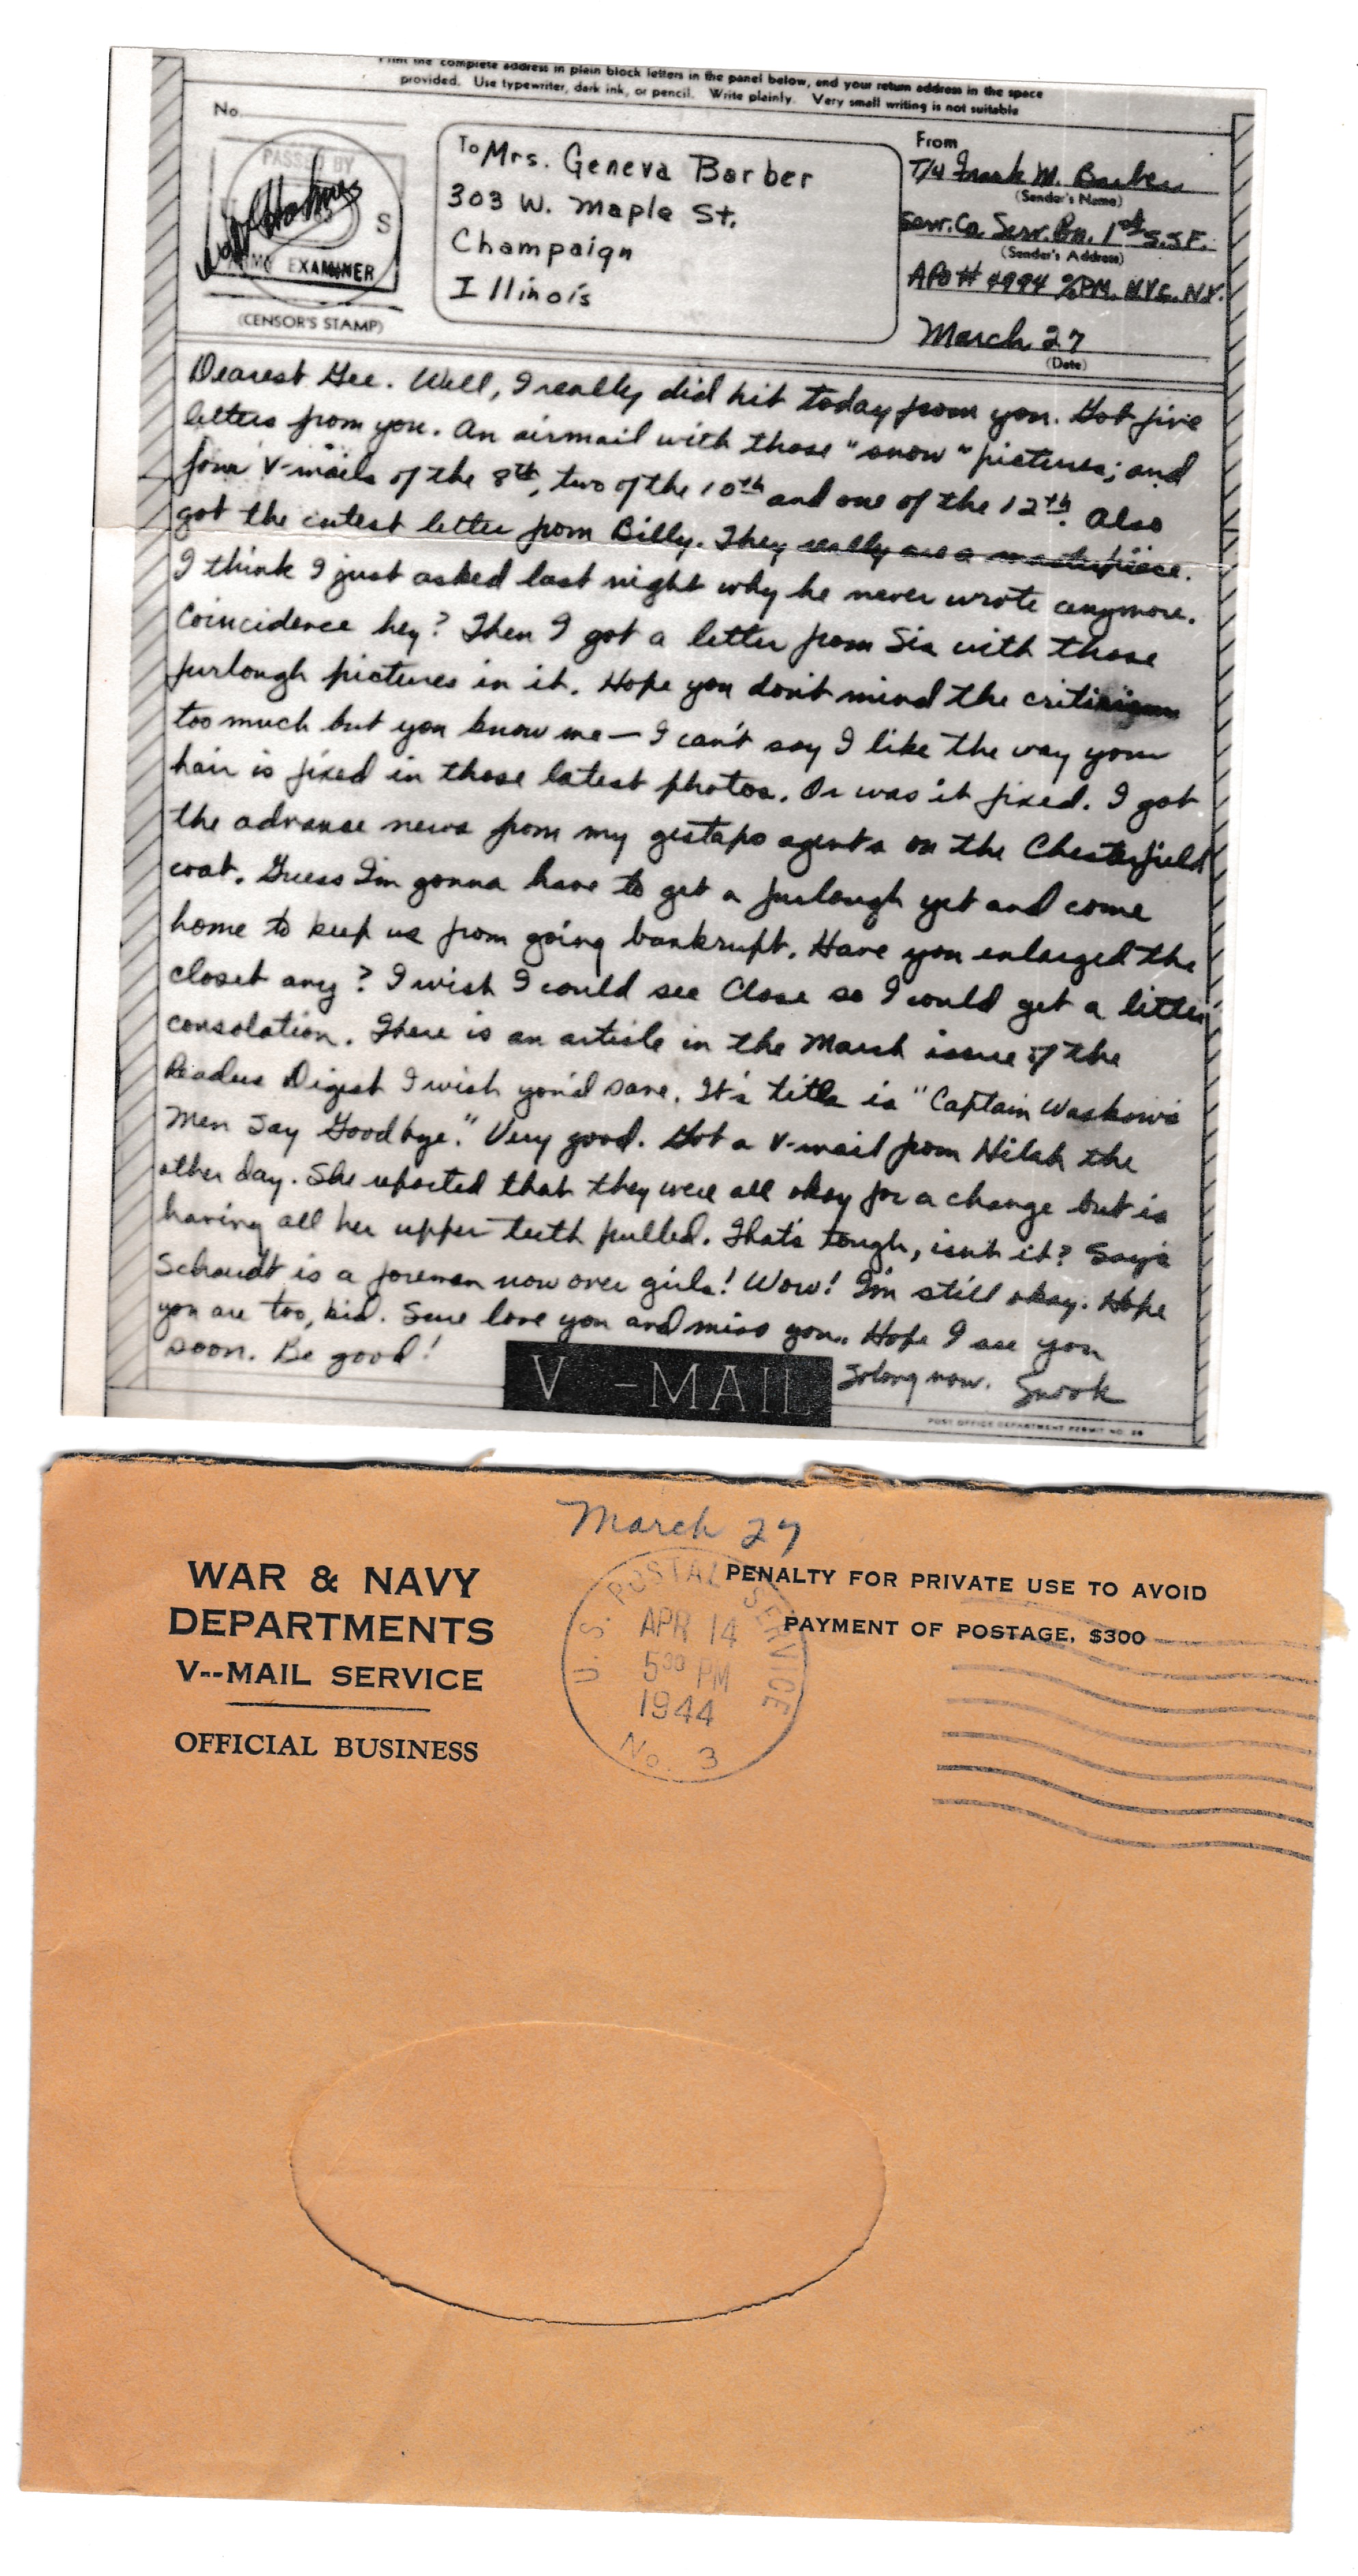 Print the complete address in plain block letters in the panel below, and your return address in the space
provided. Use typewriter, dark ink, or pencil. Write plainly. Very small writing is not suitable
No.
PASSED BY
S
EXAMINER
(CENSOR'S STAMP)
To Mrs. Geneva Barber
303 W. Maple St.
Champaign
Illinois
From
T/4 Frank W. Barber
(Sender's Name)
Serv. Co. Serv. Bn. 1st S.S.F.
(Sender's Address)
APO # 4994 c/o PM. NYC. N.Y.
March 27
(Date)
Dearest Gee. Well, I really did hit today from you. Got five
letters from you. An airmail with those "snow" pictures; and
four V-mails of the 8th, two of the 10th and one of the 12th. Also
got the cutest letter from Billy. They really are a masterpiece.
I think I just asked last night why he never wrote anymore.
Coincidence hey? Then I got a letter from Sis with those
furlough pictures in it. Hope you don't mind the criticism
too much but you know me — I can't say I like the way your
hair is fixed in those latest photos. Or was it fixed. I got
the advance news from my gestapo agents on the Chesterfield
coat. Guess I'm gonna have to get a furlough yet and come
home to keep us from going bankrupt. Have you enlarged the
closet any? I wish I could see Close so I could get a little
consolation. There is an article in the March issue of the
Readers Digest I wish you'd save. It's title is "Captain Waskow's
Men Say Goodbye." Very good. Got a V-mail from Hilah the
other day. She reported that they were all okay for a change but is
having all her upper teeth pulled. That's tough, isn't it? Say's
Schmidt is a foreman now over girls! Wow! I'm still okay. Hope
you are too, kid. Sure love you and miss you. Hope I see you
soon. Be good!
So long now. Snook
V-MAIL
POST OFFICE DEPARTMENT PERMIT NO. 28
March 27
WAR & NAVY
DEPARTMENTS
V--MAIL SERVICE
OFFICIAL BUSINESS
U.S. POSTAL SERVICE
APR 14
5 30 PM
1944
No. 3
PENALTY FOR PRIVATE USE TO AVOID
PAYMENT OF POSTAGE, $300